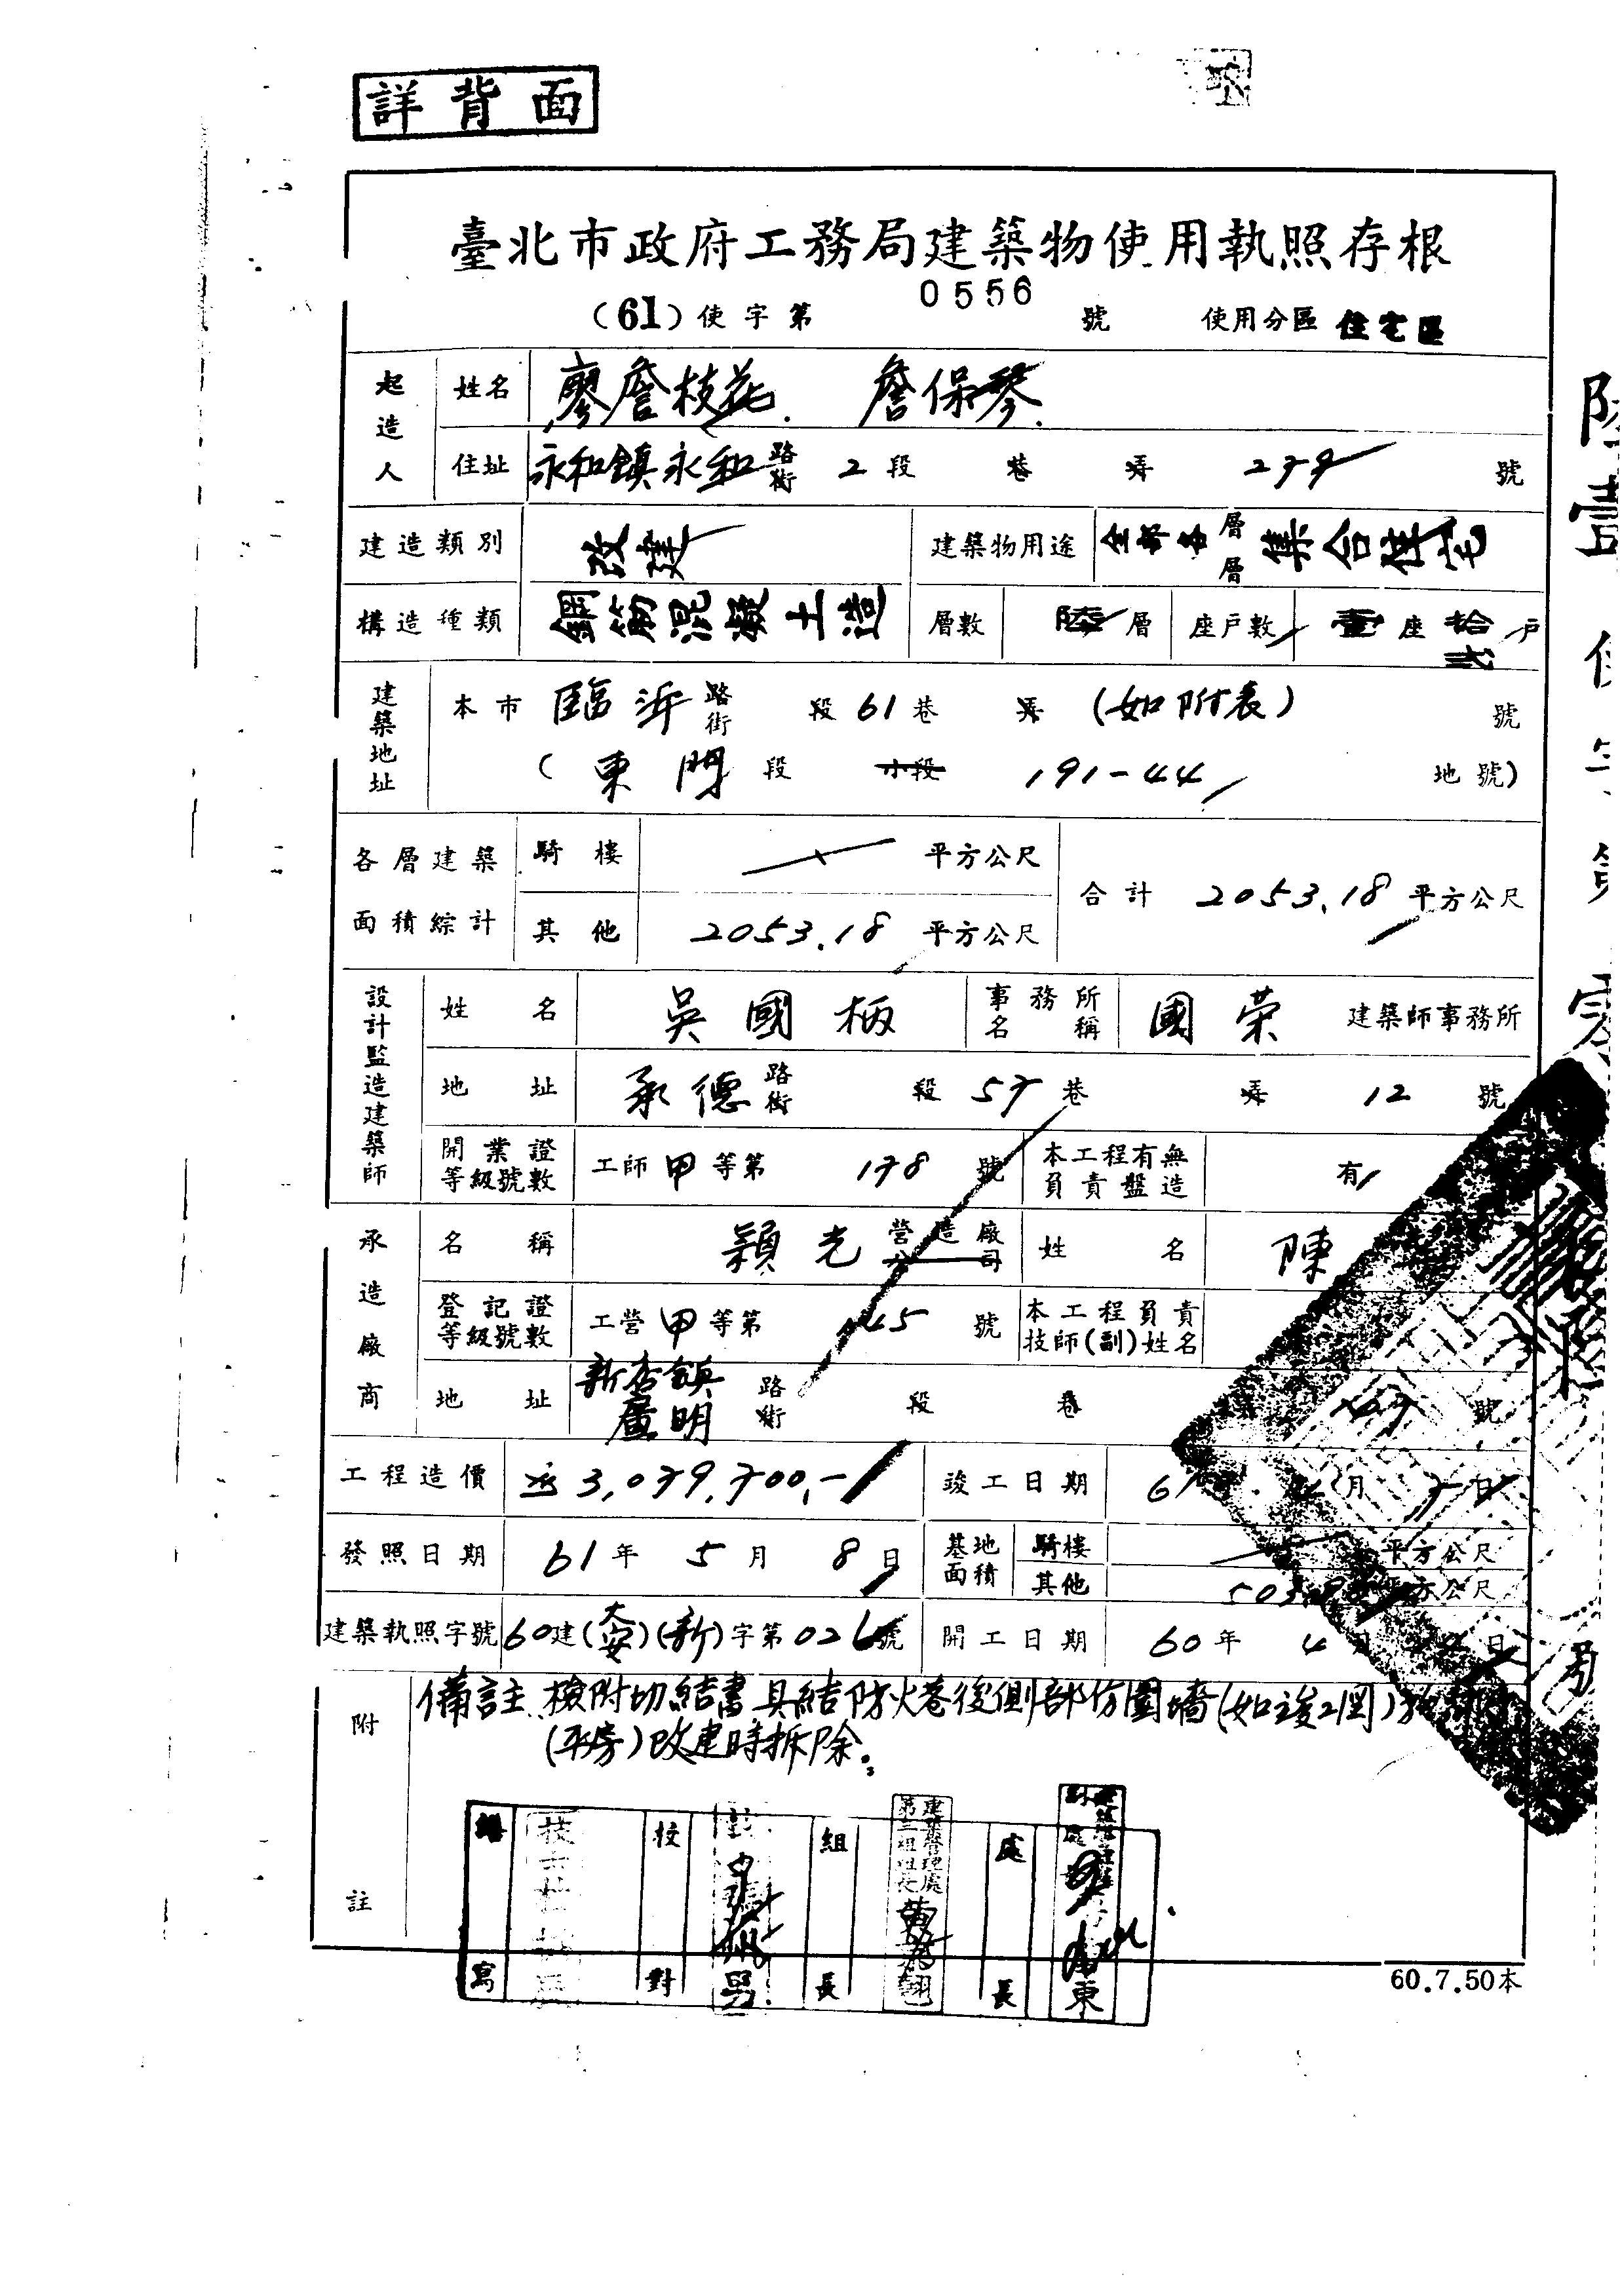 詳背面
臺北市政府工務局建築物使用執照存根
(61)使字第 0556 號 使用分區 住宅區
起造人 姓名 廖詹枝花 詹保琴
住址 永和鎮永和 路街 2段 巷 弄 279 號
建造類別 改建 建築物用途 全部各層層 集合住宅
構造種類 鋼筋混凝土造 層數 陸層 座戶數 壹座 拾貳戶
建築地址 本市 臨沂 路街 段 61巷 弄 (如附表) 號
(東門 段 小段 191-44 地號)
各層建築面積綜計 騎樓 平方公尺 合計 2053.18 平方公尺
其他 2053.18 平方公尺
設計監造建築師 姓名 吳國柄 事務所名稱 國榮 建築師事務所
地址 承德 路街 段 57巷 弄 12 號
開業證等級號數 工師甲等第 178 號 本工程有無負責監造 有
承造廠商 名稱 穎光 營造廠公司 姓名 陳
登記證等級號數 工營甲等第 號 本工程負責技師(副)姓名
地址 新店鎮廣明 路街 段 巷 號
工程造價 3,079,700,- 竣工日期 月 日
發照日期 61年 5月 8日 基地面積 騎樓 平方公尺
其他 平方公尺
建築執照字號 60建(大安)(新)字第 號 開工日期 60年 4月 日
附註 備註、檢附切結書具結防火巷後側部份圍墻(如竣工圖)
(平房)改建時拆除。
繕寫 校對 組長 處長
建築管理處第三組組長
60.7.50本
陸壹使字第